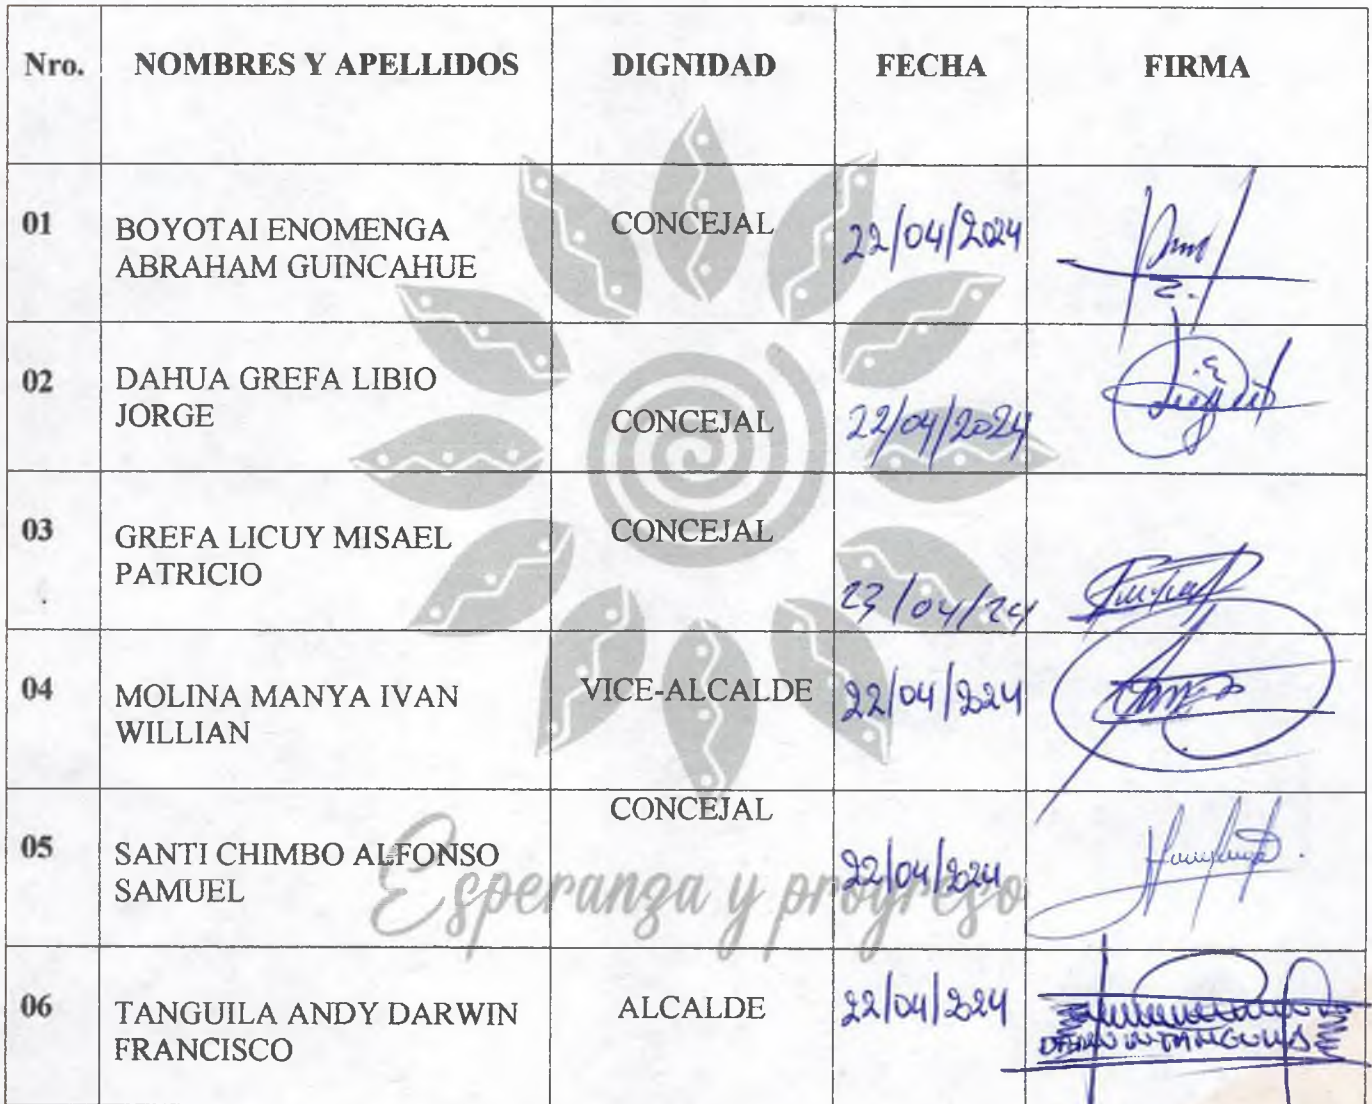 Nro. NOMBRES Y APELLIDOS DIGNIDAD FECHA FIRMA
01 BOYOTAI ENOMENGA ABRAHAM GUINCAHUE CONCEJAL 22/04/2024
02 DAHUA GREFA LIBIO JORGE CONCEJAL 22/04/2024
03 GREFA LICUY MISAEL PATRICIO CONCEJAL 23/04/24
04 MOLINA MANYA IVAN WILLIAN VICE-ALCALDE 22/04/2024
05 SANTI CHIMBO ALFONSO SAMUEL CONCEJAL 22/04/2024
Esperanza y progreso
06 TANGUILA ANDY DARWIN FRANCISCO ALCALDE 22/04/2024
DARWIN TANGUILA